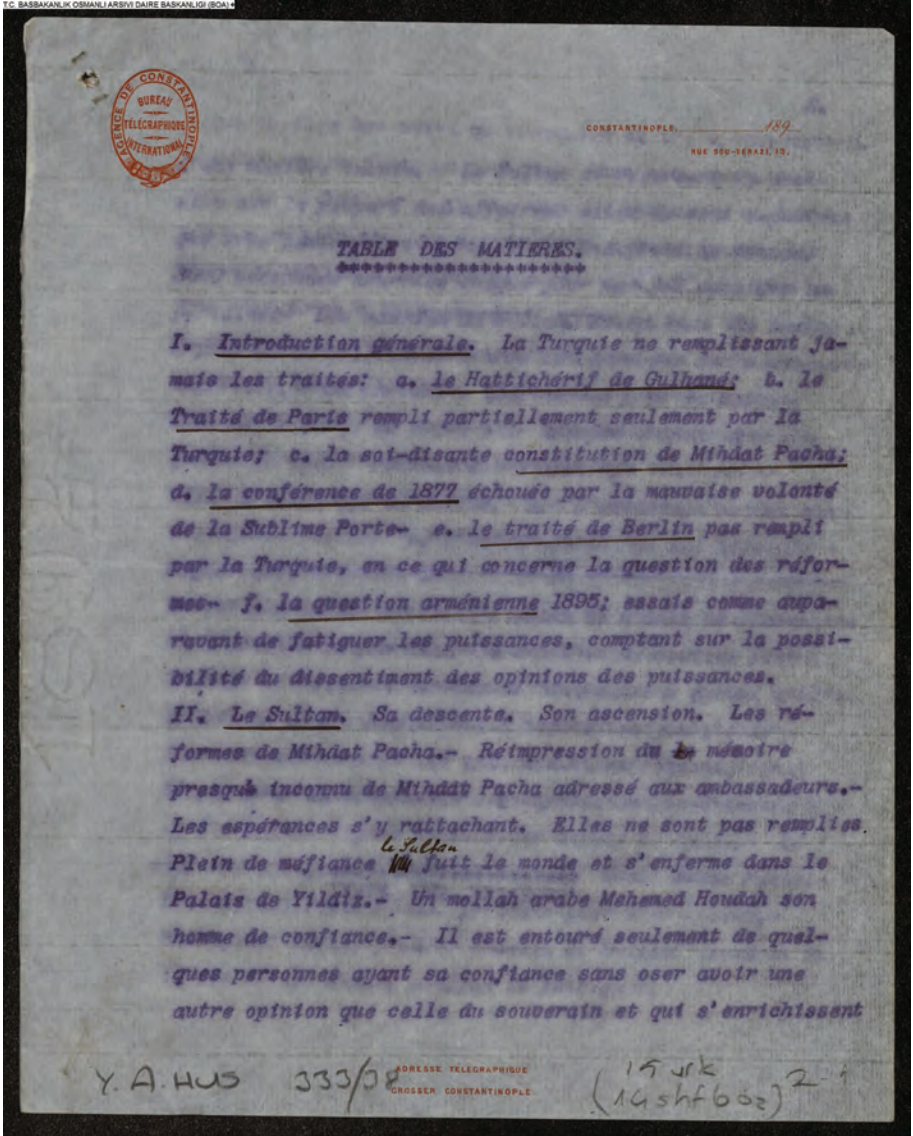 T.C. BASBAKANLIK OSMANLI ARSIVI DAIRE BASKANLIGI (BOA)
AGENCE DE CONSTANTINOPLE
BUREAU
TÉLÉGRAPHIQUE
INTERNATIONAL
CONSTANTINOPLE, 189
RUE SOU-TERAZI, 10.
TABLE DES MATIERES.
I. Introduction générale. La Turquie ne remplissant ja-
mais les traités: a. le Hattichérif de Gulhané; b. le
Traité de Paris rempli partiellement seulement par la
Turquie; c. la soi-disante constitution de Mihdat Pacha;
d. la conférence de 1877 échouée par la mauvaise volonté
de la Sublime Porte- e. le traité de Berlin pas rempli
par la Turquie, en ce qui concerne la question des réfor-
mes- f. la question arménienne 1895; essais comme aupa-
ravant de fatiguer les puissances, comptant sur la possi-
bilité du dissentiment des opinions des puissances.
II. Le Sultan. Sa descente. Son ascension. Les ré-
formes de Mihdat Pacha.- Réimpression du mémoire
presque inconnu de Mihdat Pacha adressé aux ambassadeurs.-
Les espérances s'y rattachant. Elles ne sont pas remplies.
Plein de méfiance le Sultan fuit le monde et s'enferme dans le
Palais de Yildiz.- Un mollah arabe Mehemed Houdah son
homme de confiance.- Il est entouré seulement de quel-
ques personnes ayant sa confiance sans oser avoir une
autre opinion que celle du souverain et qui s'enrichissent
ADRESSE TELEGRAPHIQUE
GROSSER CONSTANTINOPLE
Y. A. HUS 333/38